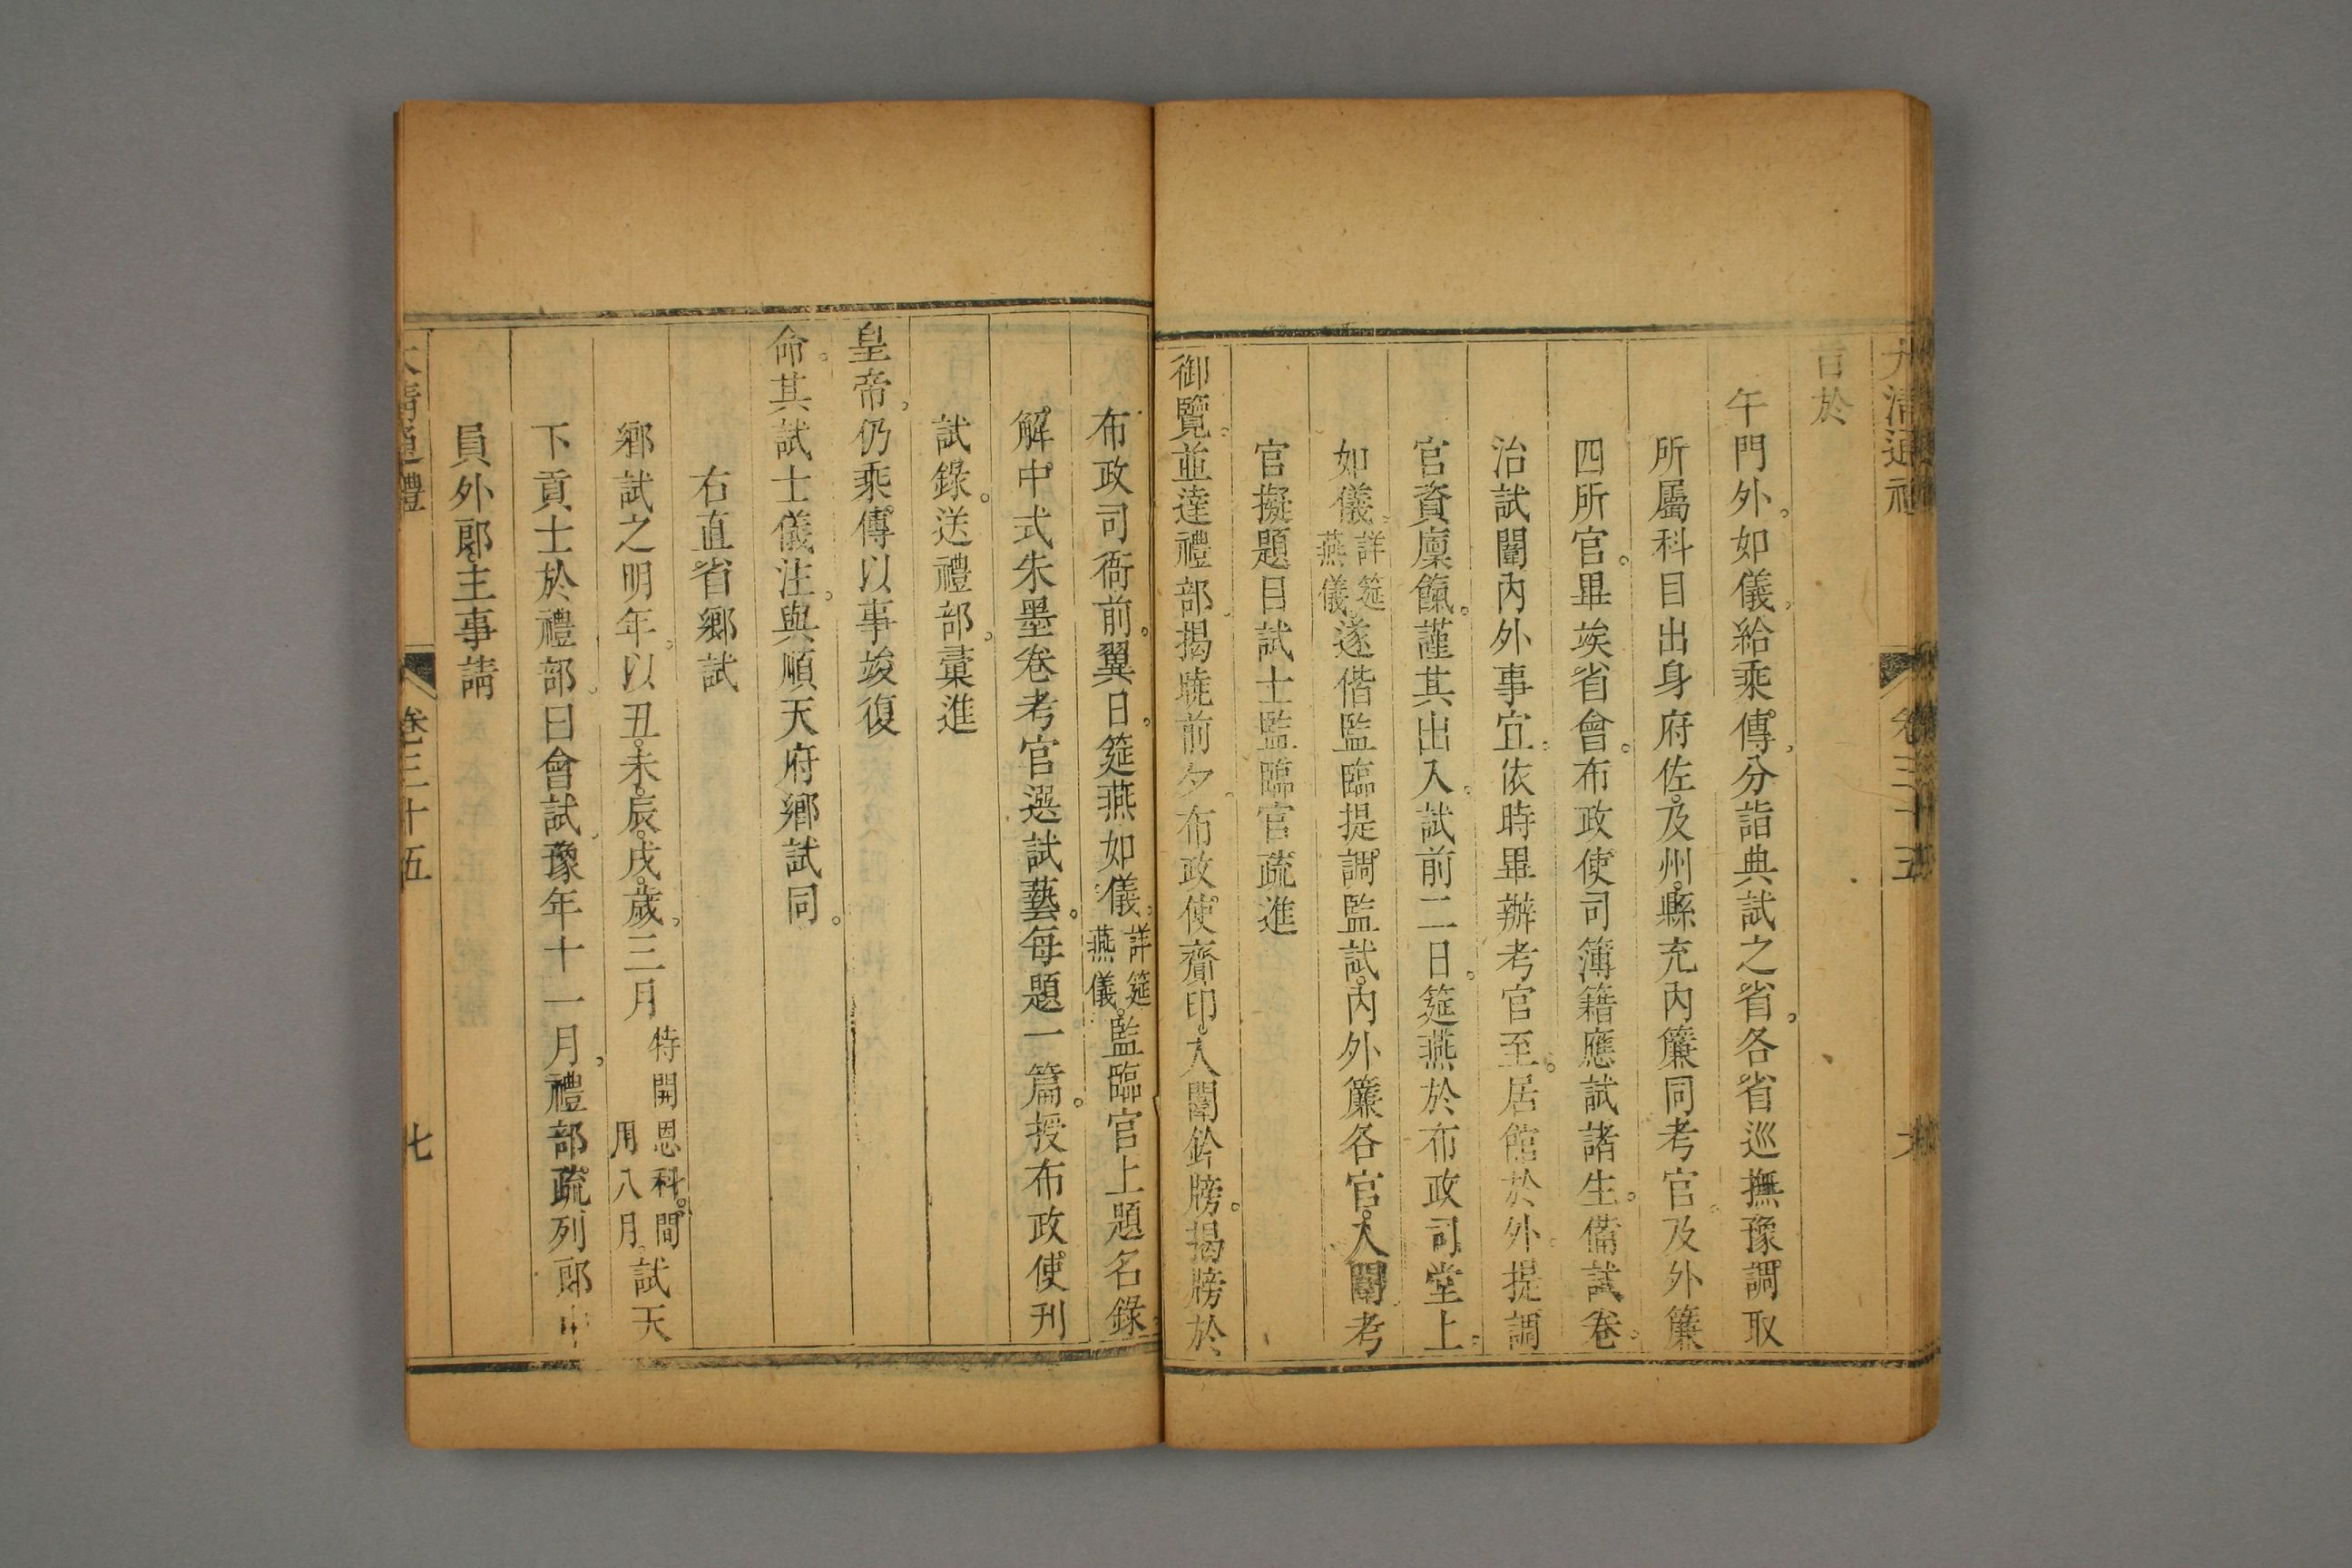 大清通禮 卷三十五
旨於
午門外。如儀。給乘傳。分詣典試之省。各省巡撫豫調取
所屬科目出身府佐。及州。縣充內簾同考官。及外簾
四所官。畢竢省會。布政使司簿籍應試諸生。備試卷。
治試闈內外事宜。依時畢辦考官至。居館於外。提調
官資廩餼。謹其出入。試前二日。筵燕於布政司堂上。
如儀。詳筵燕儀。遂偕監臨提調監試。內外簾各官。入闈考
官擬題目試士監臨官疏進
御覽。並達禮部。揭曉前夕。布政使齎印。入闈鈐牓。揭牓於
布政司衙前。翼日。筵燕如儀。詳筵燕儀。監臨官上題名錄
解中式朱墨卷考官選試藝。每題一篇。授布政使刊
試錄。送禮部。彙進
皇帝。仍乘傳以事竣復
命。其試士儀注。與順天府鄉試同。
右直省鄉試
鄉試之明年。以丑。未。辰。戌。歲。三月特開恩科。間用八月。試天
下貢士於禮部。曰會試。豫年十一月。禮部疏列郎中
員外郎。主事請
大清通禮 卷三十五 七